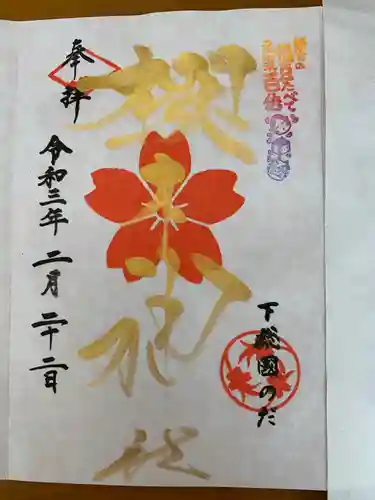 奉拝
櫻木神社
下総國のだ
令和三年 二月 二十二日